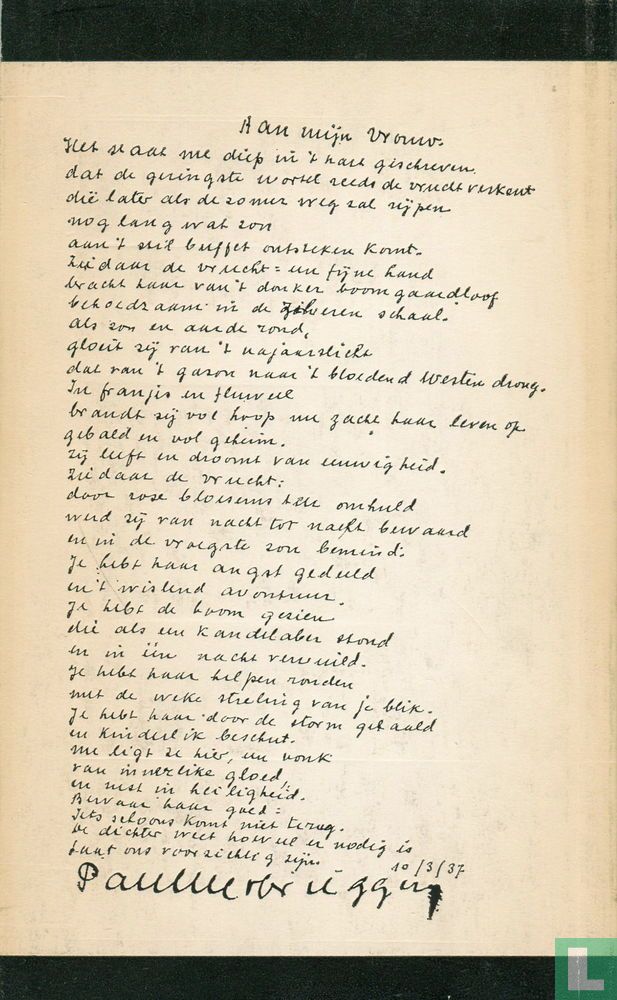 Aan mijn vrouw.
Het staat me diep in 't hart geschreven
dat de geringste wortel reeds de vrucht verkent
die later als de zomer weg zal rijpen
nog lang wat zon
aan 't stil buffet ontsteken komt.
Ziedaar de vrucht: een fijne hand
bracht haar van 't donker boomgaardloof
behoedzaam in de zilveren schaal.
als zon en aarde rond,
gloeit zij van 't najaarslicht
dat van 't gazon naar 't bloedend Westen drong.
In franjes en fluweel
brandt zij vol hoop nu zacht haar leven op
gebald en vol geheim.
zij leeft en droomt van eeuwigheid.
Ziedaar de vrucht:
door rose bloesems teer omhuld
werd zij van nacht tot nacht bewaard
en in de vroegste zon bemind.
Je hebt haar angst geduld
en 't wislend avontuur.
Je hebt de boom gezien
die als een kandelaber stond
en in één nacht verwild.
Je hebt haar helpen ronden
met de weke streling van je blik.
Je hebt haar door de storm gehaald
en kinderlik beschut.
nu ligt ze hier, een vonk
van innerlike gloed,
en rust in heiligheid.
Bewaar haar goed:
Iets schoons komt niet terug.
De dichter weet hoeveel er nodig is
Laat ons voorzichtig zijn.
10/3/37
Paul Verbruggen
L